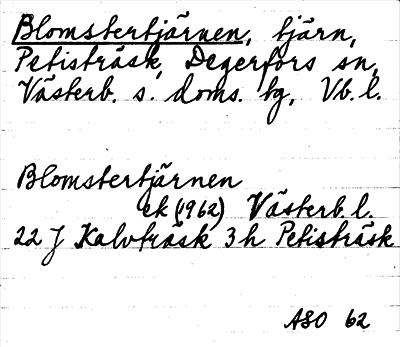 Blomstertjärnen, tjärn,
Petisträsk, Degerfors sn,
Västerb. s. doms. tg, Vb. l.
Blomstertjärnen
ek (1962) Västerb. l.
22 J Kalvträsk 3 h Petisträsk
ASO 62